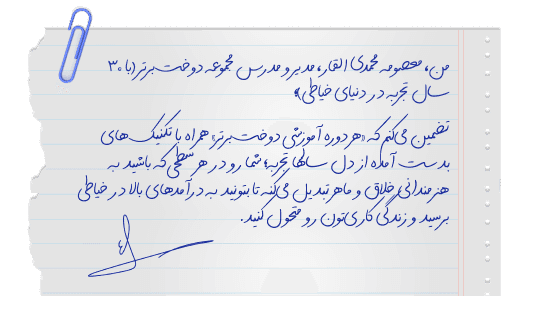 من، معصومه محمدی القار، مدیر و مدرس مجموعه دوخت برتر (با ۳۰
سال تجربه در دنیای خیاطی)،
تضمین می‌کنم که «هر دوره آموزشی دوخت برتر» همراه با تکنیک‌های
بدست آمده از دل سالها تجربه، شما رو در هر سطحی که باشید به
هنرمندانی خلاق و ماهر تبدیل می‌کنه تا بتونید به درآمدهای بالا در خیاطی
برسید و زندگی کاری‌تون رو متحول کنید.